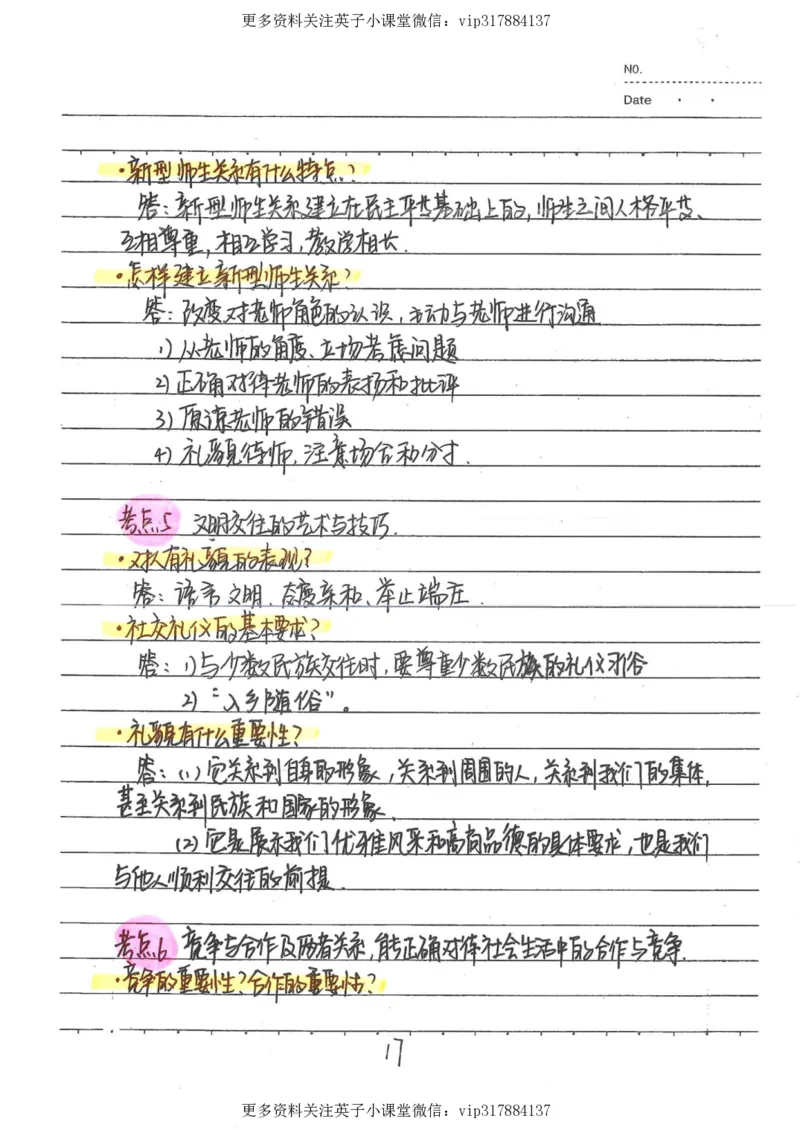 更多资料关注英子小课堂微信：vip317884137
NO.
Date
·新型师生关系有什么特点?
答：新型师生关系建立在民主平等基础上的,师生之间人格平等、
互相尊重,相互学习,教学相长.
·怎样建立新型师生关系?
答：改变对老师角色的认识,主动与老师进行沟通
1)从老师的角度、立场考虑问题
2)正确对待老师的表扬和批评
3)原谅老师的错误
4)礼貌待师,注意场合和分寸.
考点5 文明交往的艺术与技巧.
·对人有礼貌的表现?
答：语言文明、态度亲和、举止端庄.
·社交礼仪的基本要求?
答：1)与少数民族交往时,要尊重少数民族的礼仪习俗
2)“入乡随俗”。
·礼貌有什么重要性?
答：(1)它关系到自身的形象,关系到周围的人,关系到我们的集体,
甚至关系到民族和国家的形象.
(2)它是展示我们优雅风采和高尚品德的具体要求,也是我们
与他人顺利交往的前提.
考点6 竞争与合作及两者关系,能正确对待社会生活中的合作与竞争.
·竞争的重要性?合作的重要性?
17
更多资料关注英子小课堂微信：vip317884137